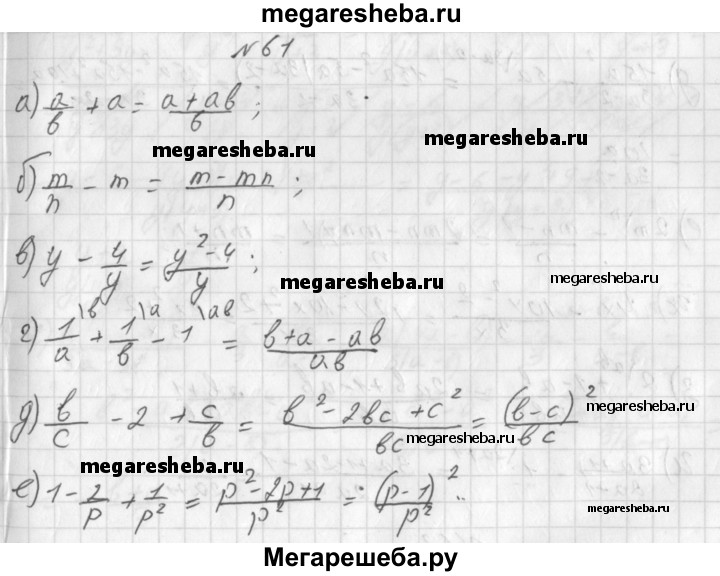 megaresheba.ru
№61
а) a/b + a = (a + ab)/b ;
megaresheba.ru
megaresheba.ru
б) m/n - m = (m - mn)/n ;
в) y - 4/y = (y² - 4)/y ;
megaresheba.ru
megaresheba.ru
г) 1/a \b + 1/b \a - 1 \ab = (b + a - ab)/ab
д) b/c - 2 + c/b = (b² - 2bc + c²)/bc = (b - c)²/bc
megaresheba.ru
megaresheba.ru
megaresheba.ru
е) 1 - 2/p + 1/p² = (p² - 2p + 1)/p² = (p - 1)²/p².
megaresheba.ru
Мегарешеба.ру